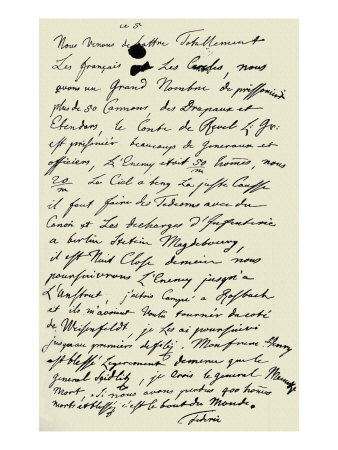 ce 5
Nous Venons de battre Totallement
Les français et Les Cercles, nous
avons un Grand Nombre de prissoniers
plus de 50 Cannons des Drapaux et
Etendars, le Conte de Revel Lt Gr:
est prisonier beaucoups de Generaux et
officiers, L'Enemy etoit 50/m homes, nous
20/m Le Ciel a beny La juste Causse
il faut faire des Tedeums avec du
Canon et Les decharges d'Infenterie
a berlin Stetin Magdebourg,
il est Nuit Close demein nous
poursuivrons L'Enemy jusqu'a
L'Unstrut, j'etois Campé a Rosbach
et ils m'avoient Voulu tourner du coté
de Weisenfeldt, je Les ai poursuivi
jusqu'au premier defilé, Mon frere Henry
est blessé Legerement de meme que le
general Seidlitz, je crois le general Meincke
Mort, Si nous avons perdus 900 homes
morts et blessez c'est le bout du Monde.
Federic